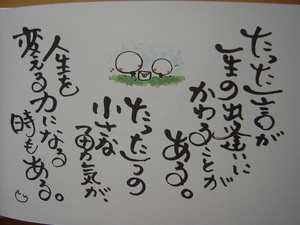 たった一言が
一生の出逢いに
かわることが
ある。
たった一つの
小さな
勇気が、
人生を
変える力になる
時もある。